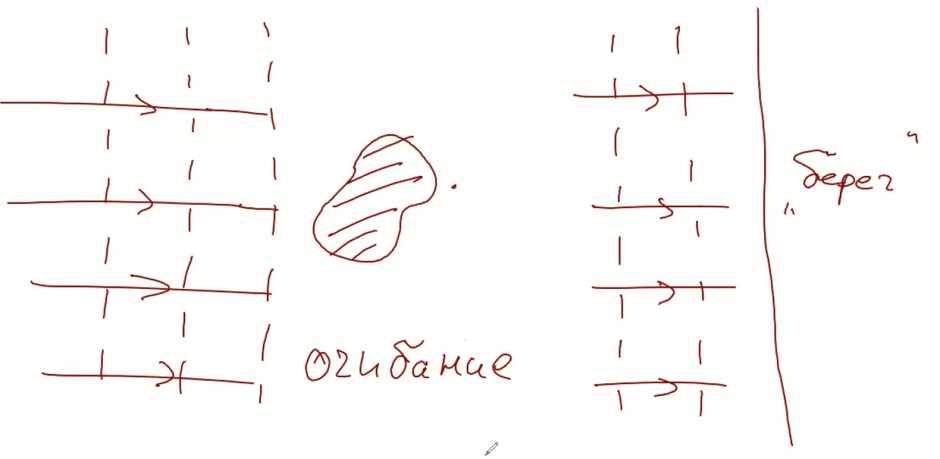 огибание
„берег“